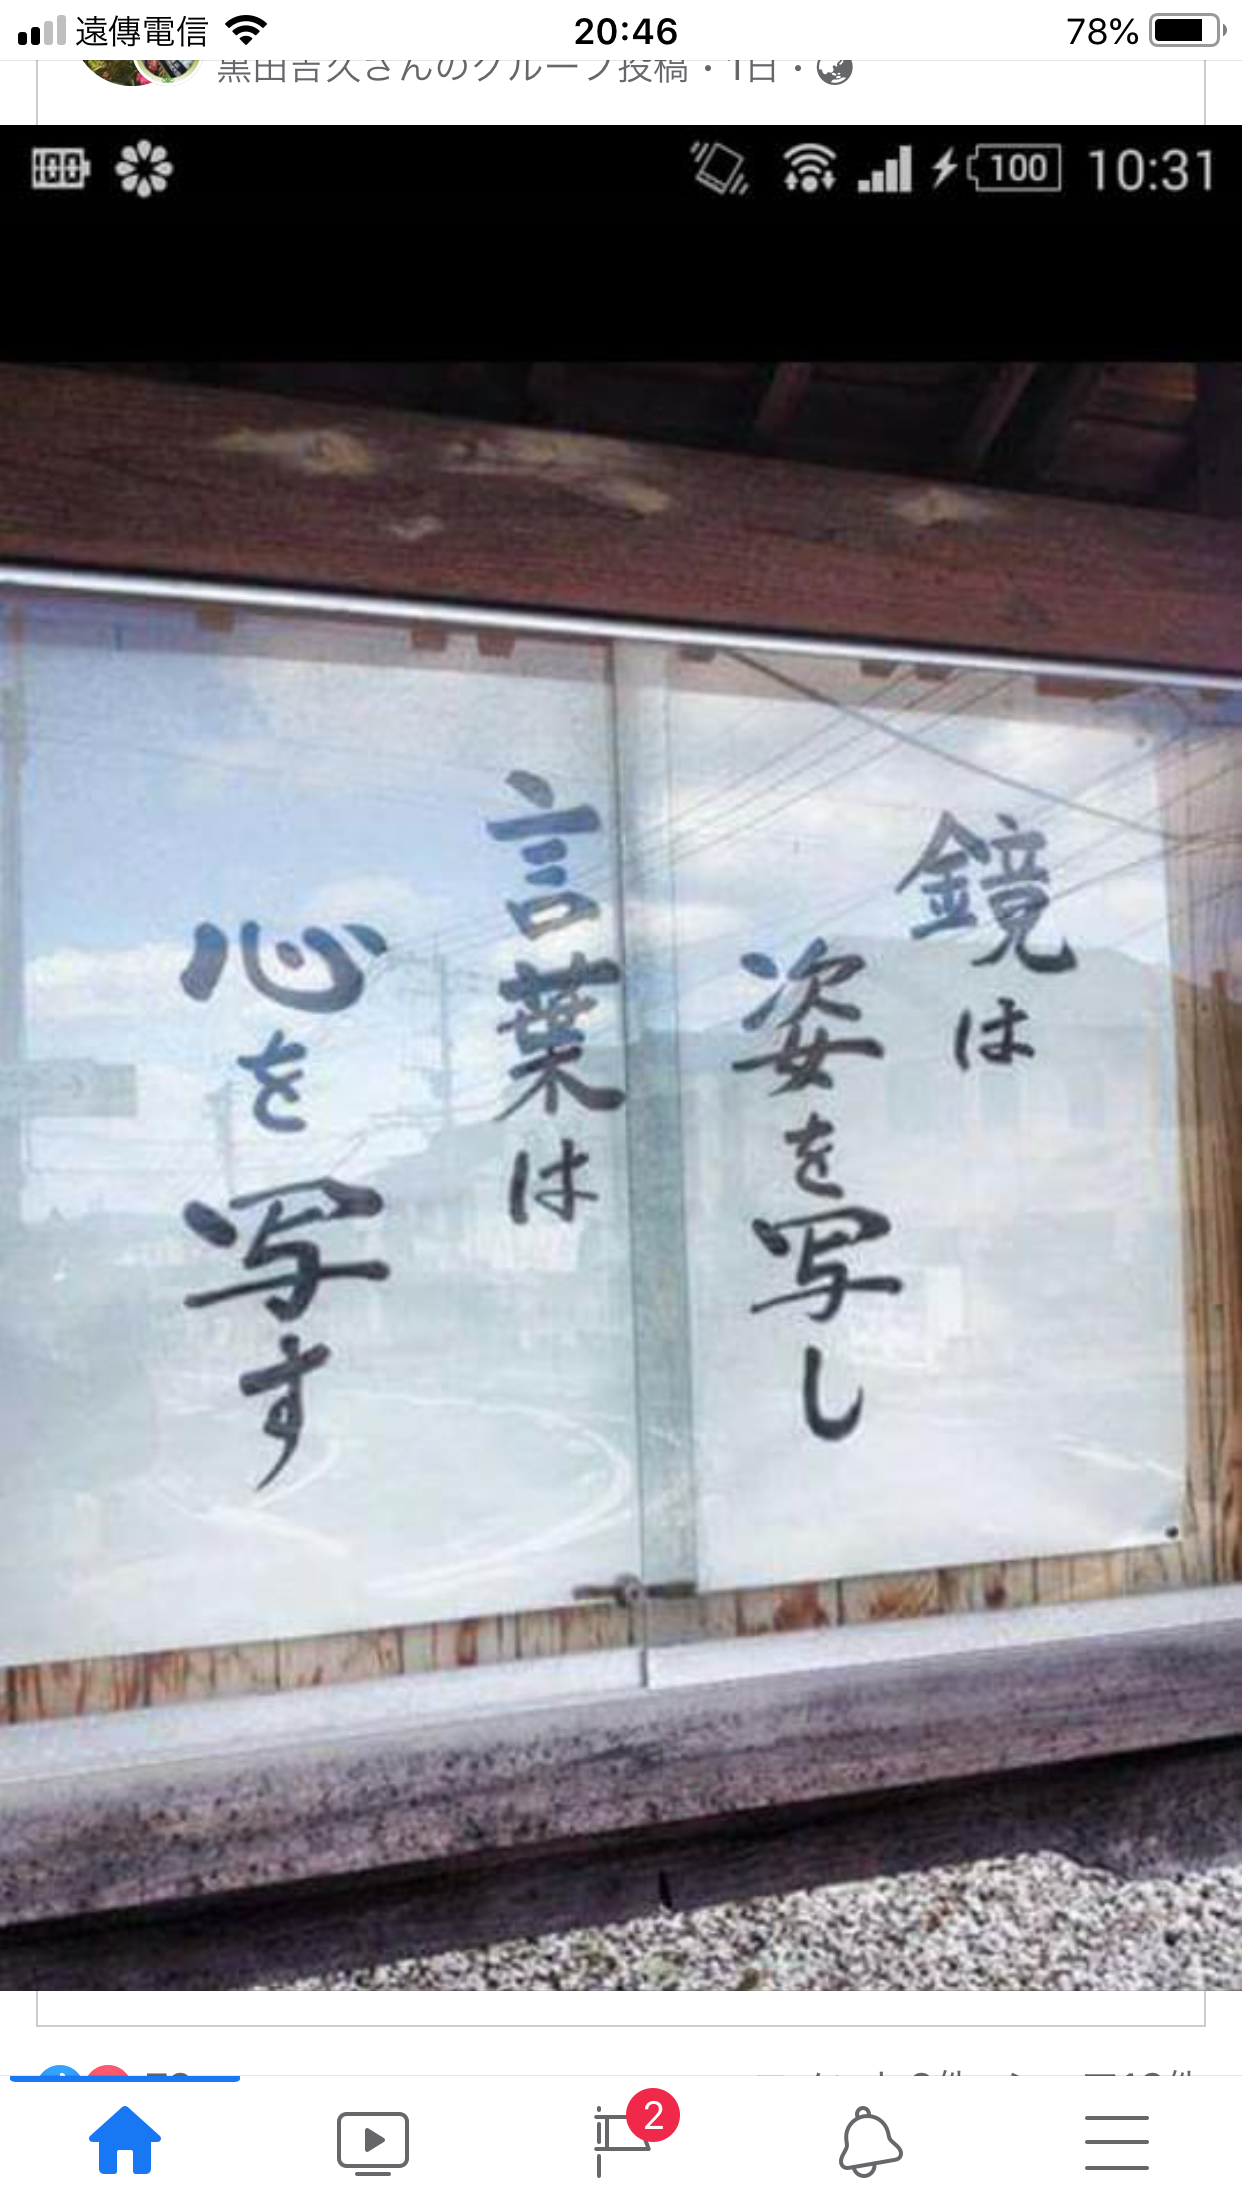 遠傳電信 20:46 78%
黒田吉久さんのグループ投稿・1日・
100 10:31
鏡は
姿を写し
言葉は
心を写す
2